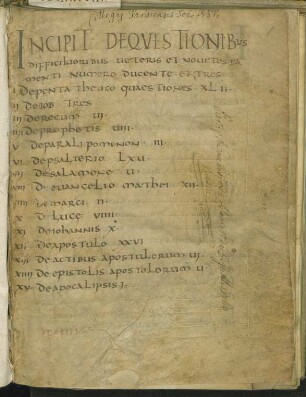 INCIPIT DE QVESTIONIBUS
DIFFICILIORIBUS UETERIS ET NOUI TESTA
MENTI NUMERO DUCENTE ET TRES
I DE PENTATHEUCO QUAESTIONES XLII
II DE IOB TRES
III DE REGUM III
IIII DE PROPHETIS IIII
V DE PARALIPOMENON III
VI DE PSALTERIO LXII
VII DE SALAMONE II
VIII DE EUANGELIO MATHEI XII
VIIII DE MARCI II
X DE LUCE VIIII
XI DE IOHANNIS X
XII DE APOSTULO XXVI
XIII DE ACTIBUS APOSTULORUM III
XIIII DE EPISTOLIS APOSTOLORUM II
XV DE APOCALIPSIS I